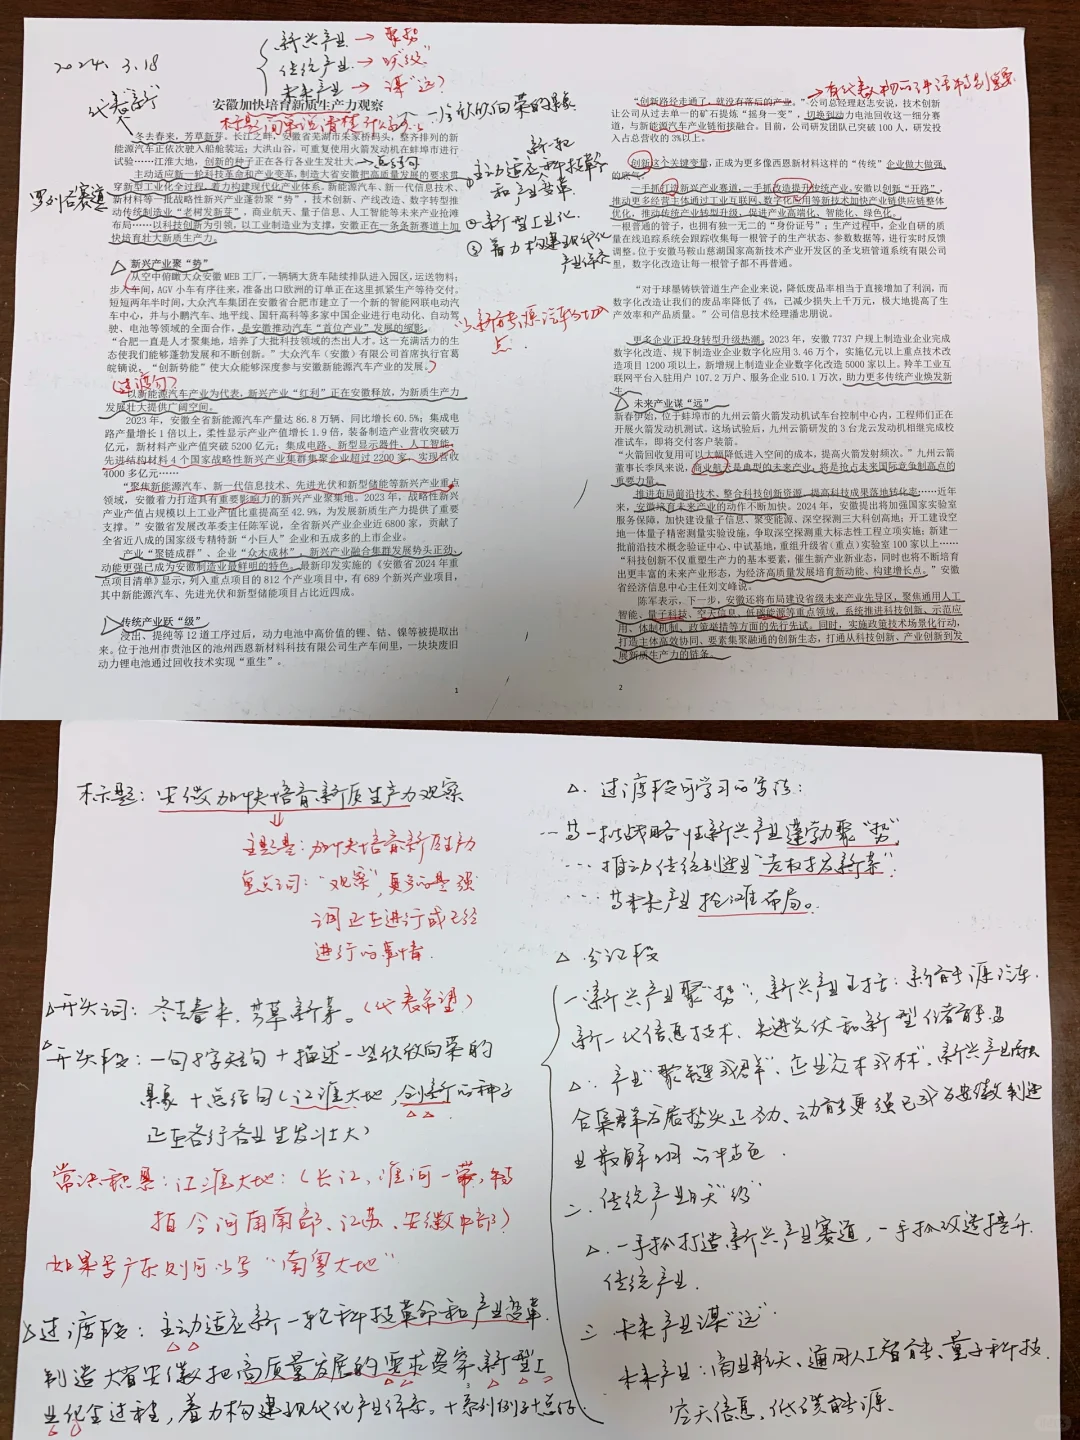 2024. 3.18
新兴产业 → 聚势
传统产业 → 跃级
未来产业 → 谋"远"
安徽加快培育新质生产力观察
标题简单说清楚
冬去春来，芳草新芽。长江之畔，安徽省芜湖市朱家桥码头，整齐排列的新
能源汽车正依次驶入船舶装运；大洪山谷，可重复使用火箭发动机在蚌埠市进行
试验……江淮大地，创新的种子正在各行各业生发壮大。
→总结句
主动适应新一轮科技革命和产业变革，制造大省安徽把高质量发展的要求贯
穿新型工业化全过程，着力构建现代化产业体系。新能源汽车、新一代信息技术、
新材料等一批战略性新兴产业蓬勃聚"势"，技术创新、产线改造、数字转型推
动传统制造业"老树发新芽"，商业航天、量子信息、人工智能等未来产业抢滩
布局……以科技创新为引领，以工业制造业为支撑，安徽正在一条条新赛道上加
快培育壮大新质生产力。
罗列各赛道
主动适应新一轮科技革命
和产业变革
② 新型工业化
③ 着力构建现代化
产业体系
新兴产业聚"势"
从空中俯瞰大众安徽 MEB 工厂，一辆辆大货车陆续排队进入园区，运送物料；
步入车间，AGV 小车有序往来，准备出口欧洲的订单正在这里抓紧生产等待交付。
短短两年半时间，大众汽车集团在安徽省合肥市建立了一个新的智能网联电动汽
车中心，并与小鹏汽车、地平线、国轩高科等多家中国企业进行电动化、自动驾
驶、电池等领域的全面合作，是安徽推动汽车"首位产业"发展的缩影。
"合肥一直是人才聚集地，培养了大批科技领域的杰出人才。这一充满活力的生
态使我们能够蓬勃发展和不断创新。"大众汽车（安徽）有限公司首席执行官葛
皖镝说，"创新势能"使大众能够深度参与安徽新能源汽车产业的发展。
以新能源汽车为切入
点
（过渡句）
以新能源汽车产业为代表，新兴产业"红利"正在安徽释放，为新质生产力
发展壮大提供广阔空间。
2023 年，安徽全省新能源汽车产量达 86.8 万辆、同比增长 60.5%；集成电
路产量增长 1 倍以上，柔性显示产业产值增长 1.9 倍，装备制造产业营收突破万
亿元，新材料产业产值突破 5200 亿元；集成电路、新型显示器件、人工智能、
先进结构材料 4 个国家战略性新兴产业集群集聚企业超过 2200 家，实现营收
4000 多亿元……
"聚焦新能源汽车、新一代信息技术、先进光伏和新型储能等新兴产业重点
领域，安徽着力打造具有重要影响力的新兴产业聚集地。2023 年，战略性新兴
产业产值占规模以上工业产值比重提高至 42.9%，为发展新质生产力提供了重要
支撑。"安徽省发展改革委主任陈军说，全省新兴产业企业近 6800 家，贡献了
全省近八成的国家级专精特新"小巨人"企业和五成多的上市企业。
产业"聚链成群"、企业"众木成林"，新兴产业融合集群发展势头正劲、
动能更强已成为安徽制造业最鲜明的特色。最新印发实施的《安徽省 2024 年重
点项目清单》显示，列入重点项目的 812 个产业项目中，有 689 个新兴产业项目，
其中新能源汽车、先进光伏和新型储能项目占比近四成。
传统产业跃"级"
浸出、提纯等 12 道工序过后，动力电池中高价值的锂、钴、镍等被提取出
来。位于池州市贵池区的池州西恩新材料科技有限公司生产车间里，一块块废旧
动力锂电池通过回收技术实现"重生"。
1
"创新路径走通了，就没有落后的产业。"公司总经理赵志安说，技术创新
让公司从过去单一的矿石提炼"摇身一变"，切换到动力电池回收这一细分赛
道，与新能源汽车产业链衔接融合。目前，公司研发团队已突破 100 人，研发投
入占总营收的 3%以上。
创新这个关键变量，正成为更多像西恩新材料这样的"传统"企业做大做强
的底气。
一手抓打造新兴产业赛道，一手抓改造提升传统产业。安徽以创新"开路"，
推动更多经营主体通过工业互联网、数字化应用等新技术加快产业链供应链整体
优化，推动传统产业转型升级，促进产业高端化、智能化、绿色化。
一根普通的管子，也拥有独一无二的"身份证号"；生产过程中，企业自研的质
量在线追踪系统会跟踪收集每一根管子的生产状态、参数数据等，进行实时反馈
调整。位于安徽马鞍山慈湖国家高新技术产业开发区的圣戈班管道系统有限公司
里，数字化改造让每一根管子都不再普通。
"对于球墨铸铁管道生产企业来说，降低废品率相当于直接增加了利润，而
数字化改造让我们的废品率降低了 4%，已减少损失上千万元，极大地提高了生
产效率和产品质量。"公司信息技术经理潘忠朋说。
更多企业正投身转型升级热潮。2023 年，安徽 7737 户规上制造业企业完成
数字化改造、规下制造业企业数字化应用 3.46 万个，实施亿元以上重点技术改
造项目 1200 项以上，新增规上制造业企业数字化改造 5000 家以上。羚羊工业互
联网平台入驻用户 107.2 万户、服务企业 510.1 万次，助力更多传统产业焕发新
生。
未来产业谋"远"
新春伊始，位于蚌埠市的九州云箭火箭发动机试车台控制中心内，工程师们正在
开展火箭发动机测试。这场试验后，九州云箭研发的 3 台龙云发动机相继完成校
准试车，即将交付客户装箭。
"火箭回收复用可以大幅降低进入空间的成本，提高火箭发射频次。"九州云箭
董事长季凤来说，商业航天是典型的未来产业，将是抢占未来国际竞争制高点的
重要力量。
推进布局前沿技术、整合科技创新资源、提高科技成果落地转化率……近年
来，安徽培育未来产业的动作不断加快。2024 年，安徽提出将加强国家实验室
服务保障，加快建设量子信息、聚变能源、深空探测三大科创高地；开工建设空
地一体量子精密测量实验设施，争取深空探测重大标志性工程立项实施；新建一
批前沿技术概念验证中心、中试基地，重组升级省（重点）实验室 100 家以上……
"科技创新不仅重塑生产力的基本要素，催生新产业新业态，同时也将不断培育
出更丰富的未来产业形态，为经济高质量发展培育新动能、构建增长点。"安徽
省经济信息中心主任刘文峰说。
陈军表示，下一步，安徽还将布局建设省级未来产业先导区，聚焦通用人工
智能、量子科技、空天信息、低碳能源等重点领域，系统推进科技创新、示范应
用、体制机制、政策举措等方面的先行先试。同时，实施政技术场景化行动，
打造主体高效协同、要素集聚融通的创新生态，打通从科技创新、产业创新到发
展新质生产力的链条。
2
标题：安徽加快培育新质生产力观察
主题是：加快培育新质生产力
重点词："观察"，更多的是强
调正在进行或已经
进行的事情.
开头词：冬去春来、芳草新芽。（代表希望）
开头段：一句4字短句＋描述一些欣欣向荣的
景象＋总结句（江淮大地，创新的种子
正在各行各业生发壮大）
常识积累：江淮大地：（长江、淮河一带，特
指今河南南部、江苏、安徽中部）
如果写广东则可以写"南粤大地"
过渡段：主动适应新一轮科技革命和产业变革.
制造大省安徽把高质量发展的要求贯穿新型工
业化全过程，着力构建现代化产业体系。＋系列例子＋总结
△. 过渡段可学习的写法：
…等一批战略性新兴产业蓬勃聚"势"
… 推动传统制造业"老树发新芽"
… 等未来产业抢滩布局。
△ 分论段
一、新兴产业聚"势"，新兴产业包括：新能源汽车.
新一代信息技术、先进光伏和新型储能
△. 产业"聚链成群"、企业"众木成林"、新兴产业融
合集群发展势头正劲、动能更强已成为安徽制造
业最鲜明的特色.
二. 传统产业跃"级"
△. 一手抓打造新兴产业赛道，一手抓改造提升
传统产业.
三 未来产业谋"远".
未来产业：商业航天、通用人工智能、量子科技.
空天信息、低碳能源.